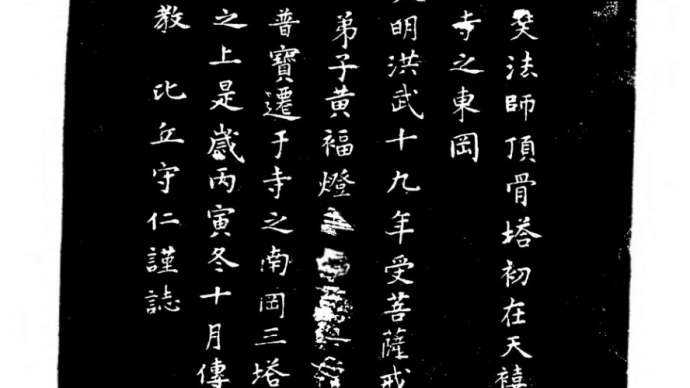 奘法師頂骨塔初在天禧
寺之東岡
明洪武十九年受菩薩戒
弟子黄褔燈
普寶遷于寺之南岡三塔
之上是歲丙寅冬十月傳
教 比丘守仁謹誌